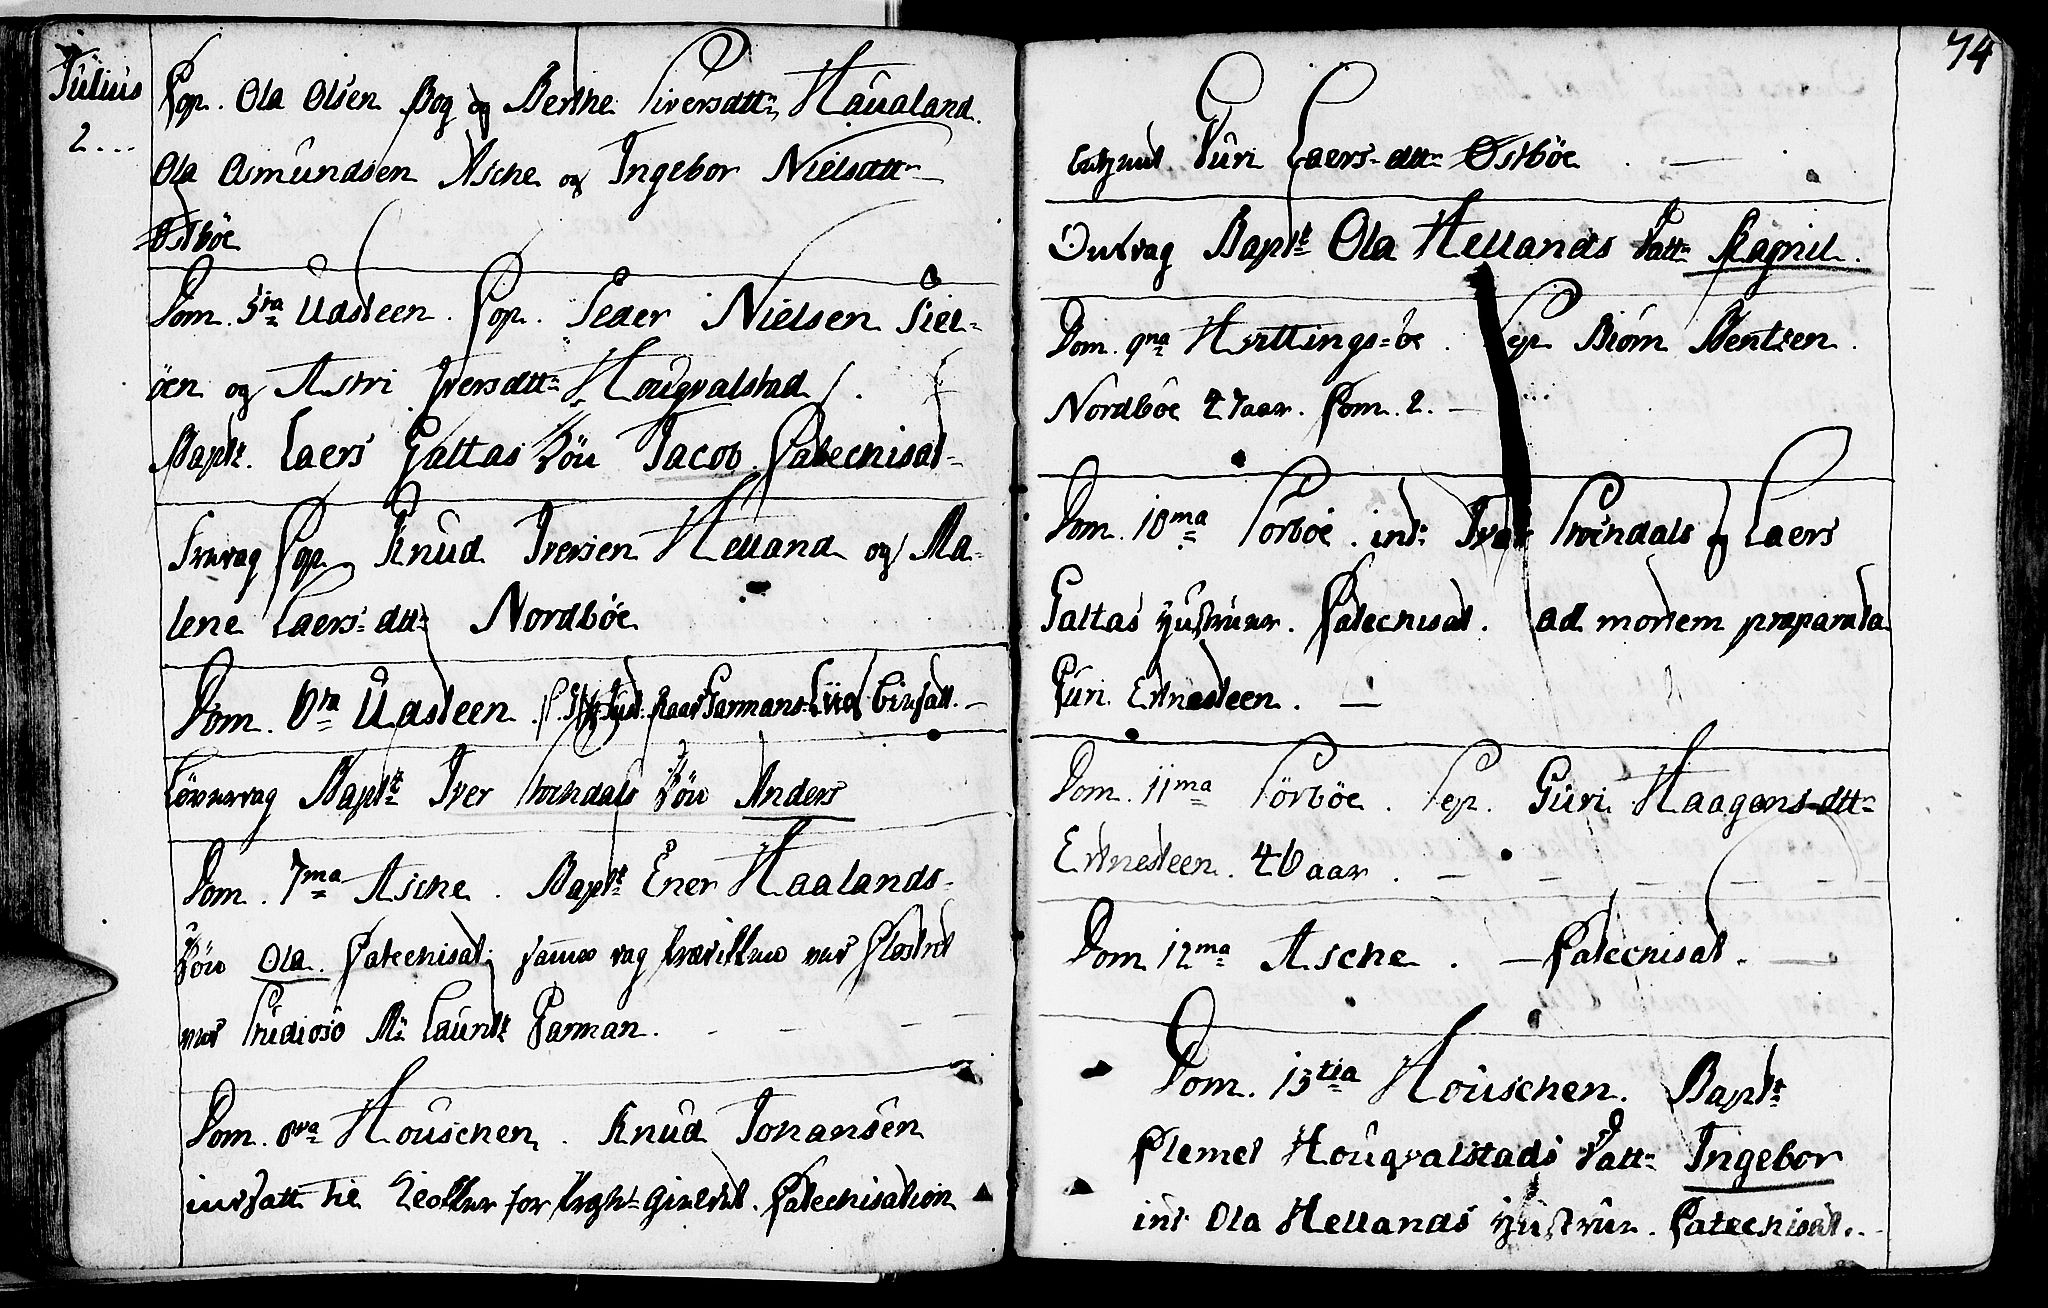 Julius
2...
Cop. Ola Olsen Bog og Berthe Siversdttr Haualand.
Ola Osmundsen Asche og Ingebor Nielsdttr
Østböe
Dom. 5ta Udsteen. Cop. Peder Nielsen Siel-
öen og Astri Iversdttr Hougvalstad
Bapt. Laers Galtas Sön Jacob. Catechisat-
Cop. Knud Iversen Helland og Ma-
lene Laers-dttr Nordböe
Dom. 6ta Udsteen
Löverdag Bapt Iver Stensdals Sön Anders
Dom. 7ma Asche. Bapt Ener Haalands-
Sön Ola. Catechisat. samme dag
med Studioso Mr Laurit Garman.
Dom. 8va Houschen. Knud Johansen
indsatt til for Catechisation
74
Guri Laers-dttr Østböe
Onsdag Bapt Ola Hellands Dattr Ragnil.
Dom. 9na Hvittings-öe. Sep. Biörn Bentsen.
Nordböe 27 aar. Com. 2.
Dom. 10ma Sörböe. int. Ivar Stensdals og Laers
Galtas Hustruer. Catechisat. ad mortem præparata
Guri Ertnesteen.
Dom. 11ma Sörböe. Sep. Guri Haagens-dttr
Ertnesteen. 46 aar.
Dom 12ma Asche. Catechisat.
Dom. 13tia Houschen. Bapt
Clemet Hougvalstads Dattr Ingebor
int Ola Hellands Hustrue. Catechisat.